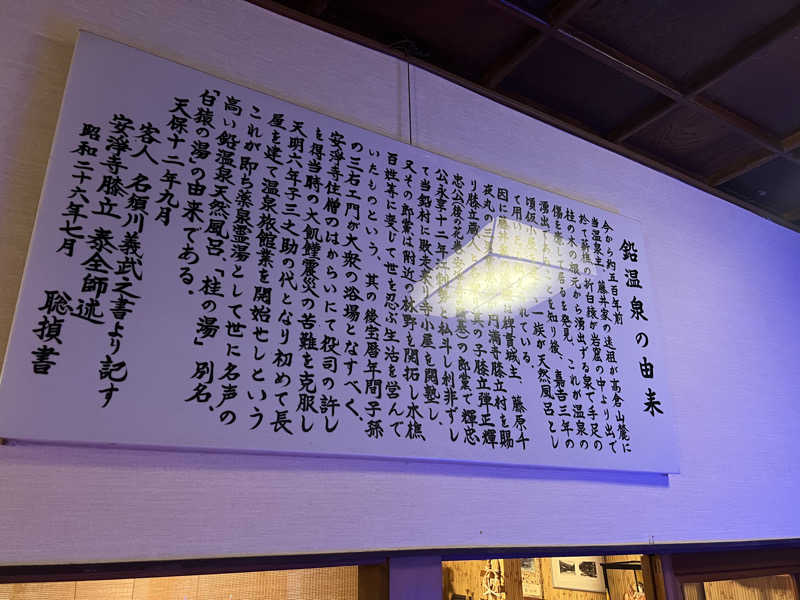 鉛温泉の由来
今から約五百年前
当温泉主、藤井家の遠祖が高倉山麓に
於て
桂の木の根元から湧出する泉で手足の
傷を
これが温泉の
湧出
を知り後、嘉吉三年の
頃仮小屋
一族が天然風呂とし
て用い
れている。
因に藤井
稗貫城主、藤原千
夜丸の
円満寺膝立村を賜
り膝立蔵人と
其の子膝立弾正輝
忠公後の花巻
の郎党で輝忠
公永享十二年
利非ずし
て当鉛村に敗走
小屋を開墾し、
又その郎党は附近の林野を開拓し水樵
百姓等に変じて世を忍ぶ生活を営んで
いたものという、其の後宝暦年間子孫
の三右エ門が大衆の浴場となすべく、
安浄寺住僧のはからいにて役司の許し
を得当時の大飢饉震災の苦難を克服し
天明六年子三之助の代となり初めて長
屋を建て温泉旅館業を開始せしという
これが即ち薬泉霊湯として世に名声の
高い鉛温泉天然風呂、「桂の湯」別名、
「白猿の湯」の由来である。
天保十二年九月
客人 名須川義武之書より記す
安浄寺膝立 泰全師述
昭和二十六年七月
聡禎書